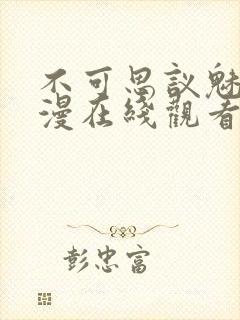 不可思议魅
漫在线觀看
彭忠富